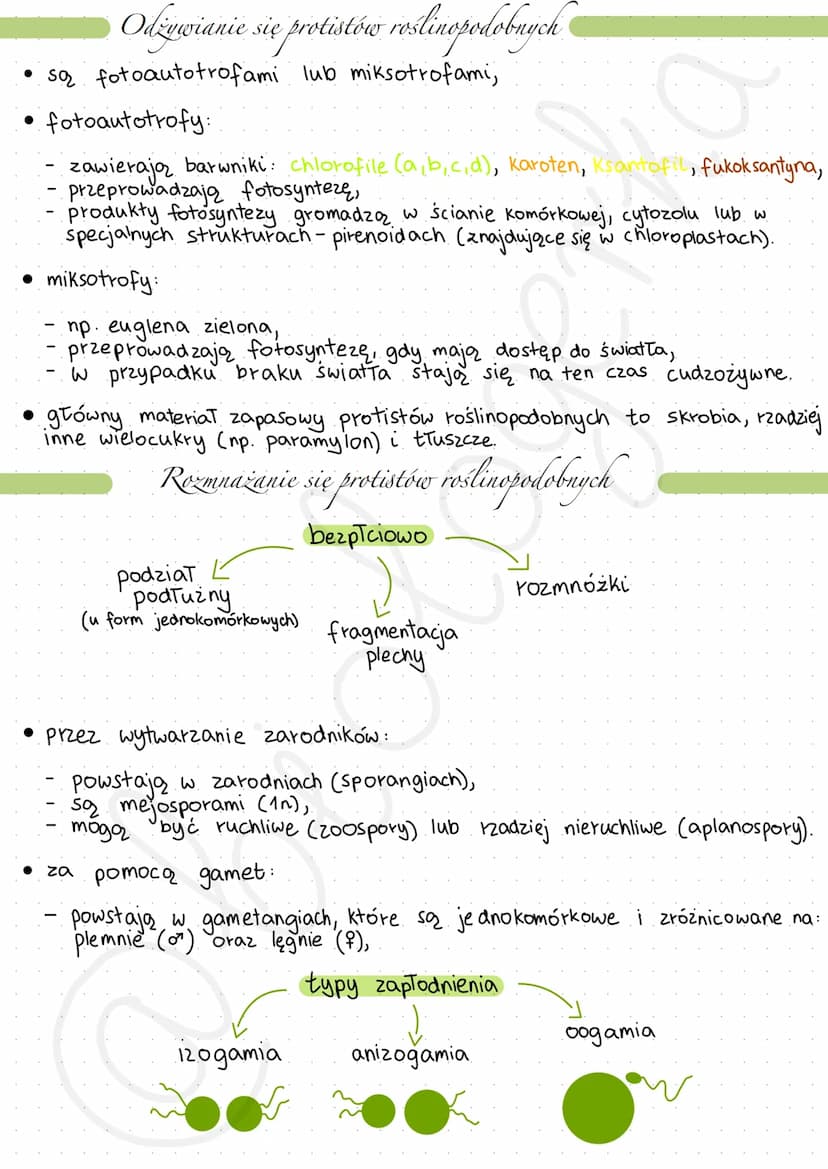 Odżywianie się protistów roślinopodobnych
• są fotoautotrofami lub miksotrofami,
• fotoautotrofy:
- zawierają barwniki: chlorofile (a,b,c,d), karoten, ksantofil, fukoksantyna,
- przeprowadzają fotosyntezę,
- produkty fotosyntezy gromadzą w ścianie komórkowej, cytozolu lub w
specjalnych strukturach - pirenoidach (znajdujące się w chloroplastach).
• miksotrofy:
- np. euglena zielona,
- przeprowadzają fotosyntezę, gdy mają dostęp do światła,
- w przypadku braku światła stają się na ten czas cudzożywne.
• główny materiał zapasowy protistów roślinopodobnych to skrobia, rzadziej
inne wielocukry (np. paramylon) i tłuszcze.
Rozmnażanie się protistów roślinopodobnych
bezpłciowo
podział
podłużny
(u form jednokomórkowych)
fragmentacja
plechy
rozmnóżki
• przez wytwarzanie zarodników:
- powstają w zarodniach (sporangiach),
- są mejosporami (1n),
- mogą być ruchliwe (zoospory) lub rzadziej nieruchliwe (aplanospory).
• za pomocą gamet:
- powstają w gametangiach, które są jednokomórkowe i zróżnicowane na:
plemnie (♂) oraz lęgnie (♀),
typy zapłodnienia
izogamia
anizogamia
oogamia